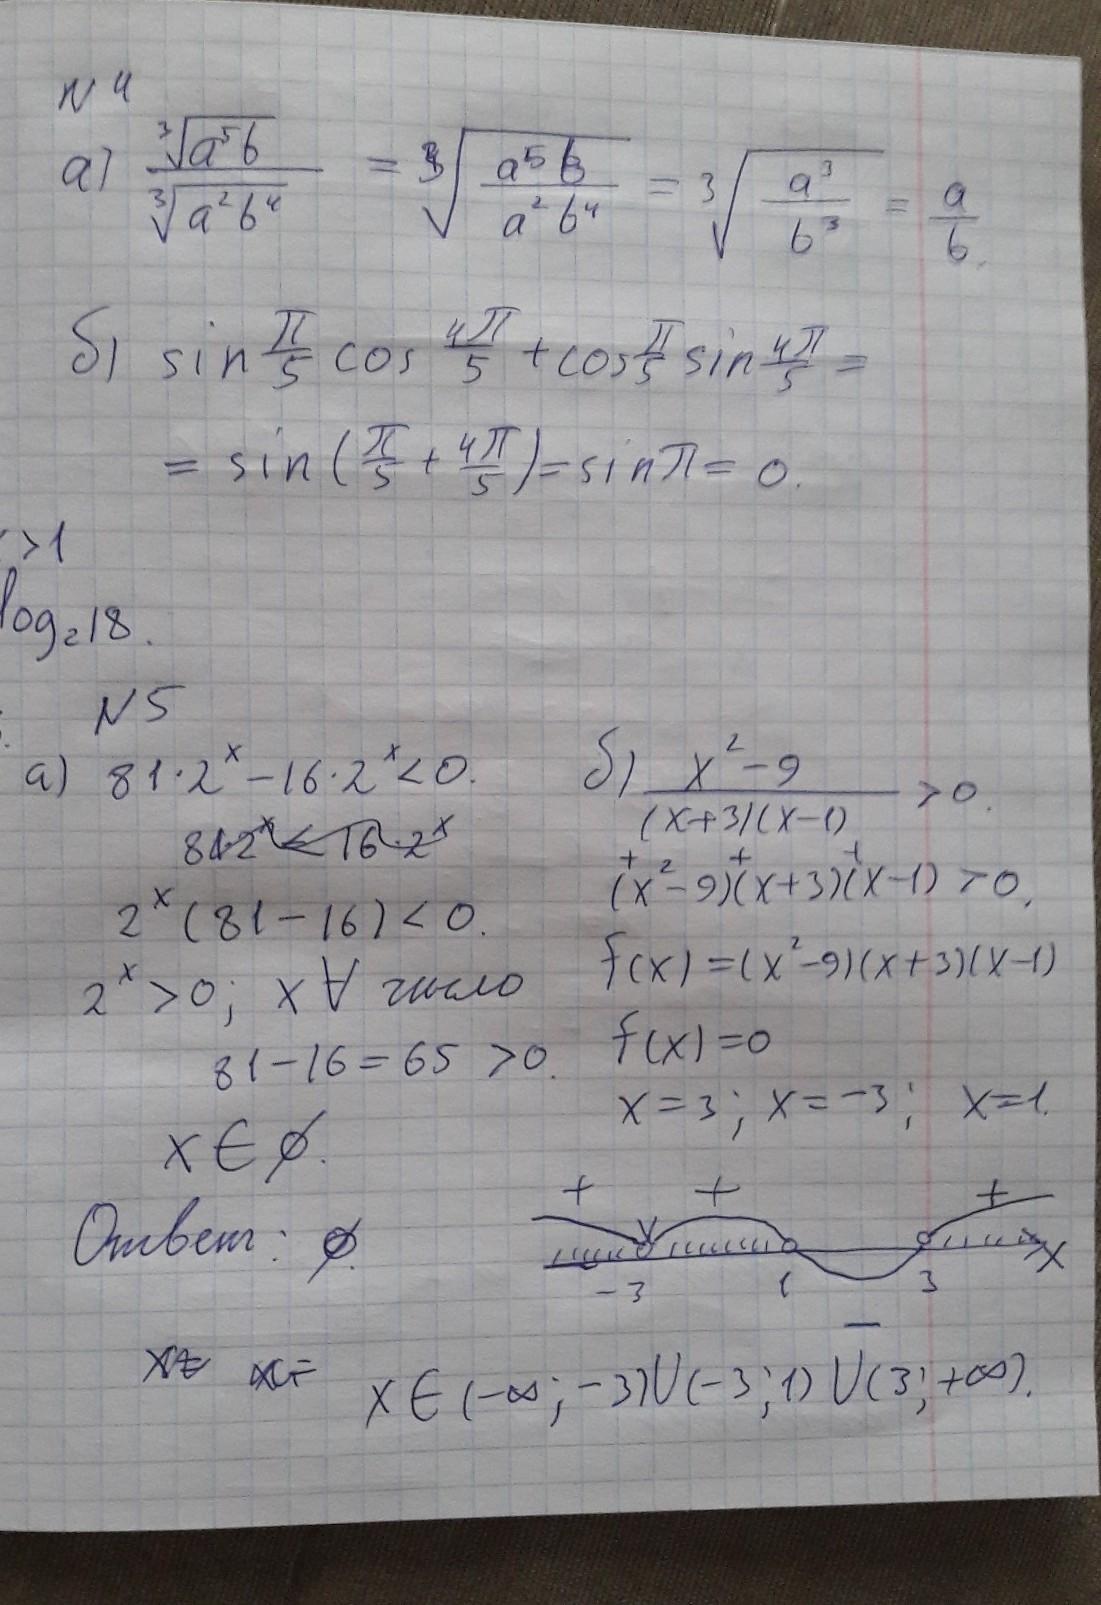 N 4
а) ∛(a⁵b) / ∛(a²b⁴) = ∛(a⁵b / a²b⁴) = ∛(a³ / b³) = a/b.
б) sin π/5 cos 4π/5 + cos π/5 sin 4π/5 =
= sin (π/5 + 4π/5) = sin π = 0.
>1
log₂18.
N 5
а) 81·2ˣ – 16·2ˣ < 0.
81·2ˣ < 16·2ˣ
2ˣ (81 – 16) < 0.
2ˣ > 0; x ∀ число
81 – 16 = 65 > 0.
x ∈ ∅.
Ответ: ∅.
б) (x² – 9) / (x+3)(x–1) > 0.
+ + +
(x² – 9)(x+3)(x–1) > 0,
f(x) = (x² – 9)(x+3)(x–1)
f(x) = 0
x = 3; x = –3; x = 1.
+ + +
–3 1 3 x
–
x= x=
x ∈ (–∞; –3) ∪ (–3; 1) ∪ (3; +∞).